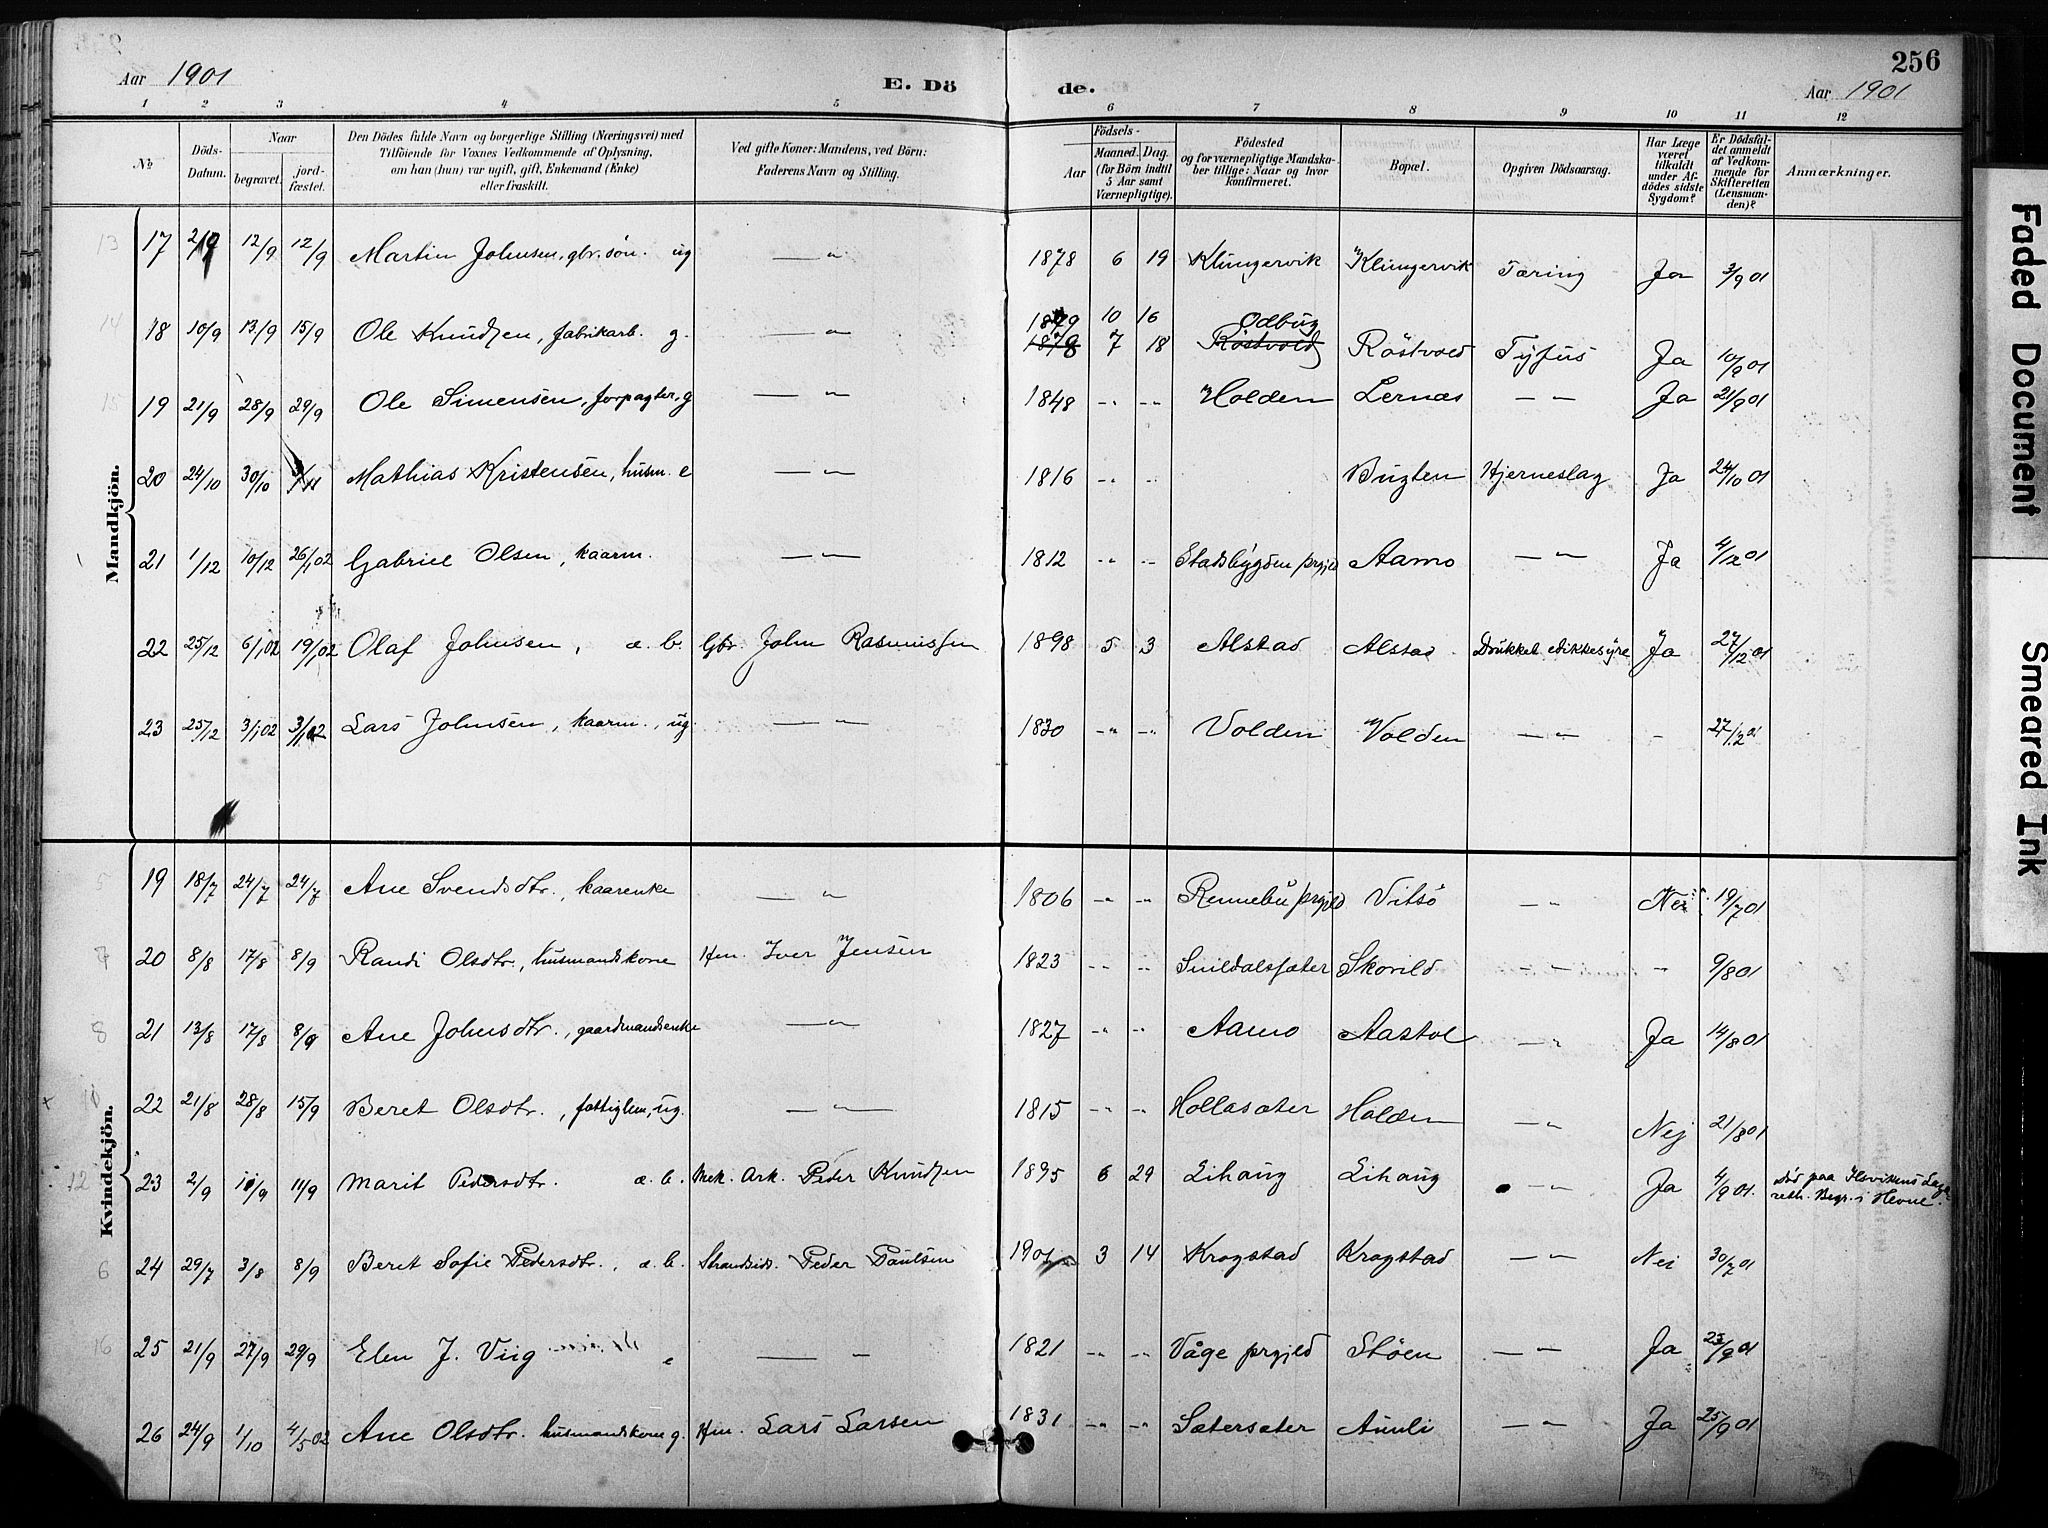 256
Aar 1901 E. Dö de. Aar 1901
1 2 3 4 5 6 7 8 9 10 11 12
No
Döds-Datum.
Naar
begravet.
jord-fæstet.
Den Dödes fulde Navn og borgerlige Stilling (Næringsvei) med
Tilföiende for Voxnes Vedkommende af Oplysning,
om han (hun) var ugift, gift, Enkemand (Enke)
eller fraskilt.
Ved gifte Koner: Mandens, ved Börn:
Faderens Navn og Stilling.
Födsels-
Aar
Maaned. Dag.
(for Börn indtil
5 Aar samt
Værnepligtige).
Födested
og for værnepligtige Mandska-
ber tillige: Naar og hvor
konfirmeret.
Bopæl.
Opgiven Dödsaarsag.
Har Læge
været
tilkaldt
under Af-
dödes sidste
Sygdom?
Er Dödsfal-
det anmeldt
af Vedkom-
mende for
Skifteretten
(Lensman-
den)?
Anmærkninger.
Mandkjön.
13 17 2/9 12/9 12/9 Martin Johnsen, gbr. søn. ug — " 1878 6 19 Klungervik Klungervik Tæring Ja 3/9 01
1879 10 16 Odbug
14 18 10/9 13/9 15/9 Ole Knudsen, fabrikarb. g. — " 1878 7 18 Röstvold Röstvold Tyfus Ja 10/9 01
15 19 21/9 28/9 29/9 Ole Simensen, forpagter, g — " 1848 -"- -"- Holden Lernæs — " Ja 21/9 01
20 24/10 30/10 3/11 Mathias Kristensen, husm. e — " 1816 -"- -"- Bugten Hjerneslag Ja 24/10 01
21 1/12 10/12 26/1 02 Gabriel Olsen, kaarm. — " 1812 -"- -"- Stadsbygden prgjld Aamo — " Ja 4/12 01
22 25/12 6/1 02 19/1 02 Olaf Johnsen, æ. b. Gbr. John Rasmussen 1898 5 3 Alstad Alstad Drukket edikkesyre Ja 27/12 01
23 25/12 3/1 02 3/1 02 Lars Johnsen, kaarm., ug. — " 1830 -"- -"- Volden Volden — " - 27/12 01
Kvindekjön.
5 19 18/7 24/7 24/7 Ane Svendsdtr., kaarenke — " 1806 -"- -"- Rennebu prgjeld Vitsö — " Nei 19/7 01
7 20 8/8 17/8 8/9 Randi Olsdtr., husmandskone Hm. Iver Jensen 1823 -"- -"- Snildalssæter Skovild — " - 9/8 01
8 21 13/8 17/8 8/9 Ane Johnsdtr., gaardmandsenke — " 1827 -"- -"- Aamo Aastol — " Ja 14/8 01
10 22 21/8 28/8 15/9 Beret Olsdtr., fattiglem, ug. — " 1815 -"- -"- Hollasæter Holden — " Nej 21/8 01
12 23 2/9 11/9 11/9 Marit Pedersdtr. æ. b. Mek. Ark. Peder Knudsen 1895 6 29 Eihaug Eihaug — " Ja 4/9 01. Död paa Ilsvikens Laza-
reth. Begr. i Hevne.
6 24 29/7 3/8 8/9 Beret Sofie Pedersdtr., æ. b. Strandsid. Peder Paulsen 1901 3 14 Krogstad Krogstad — " Nei 30/7 01
16 25 21/9 27/9 29/9 Elen J. Viig e — " 1821 -"- -"- Våge prgjeld Stöen — " Ja 23/9 01
26 24/9 1/10 4/5 02 Ane Olsdtr. husmandskone g. Hm. Lars Larsen 1831 -"- -"- Sætersæter Aunli — " Ja 25/9 01
Faded Document
Smeared Ink